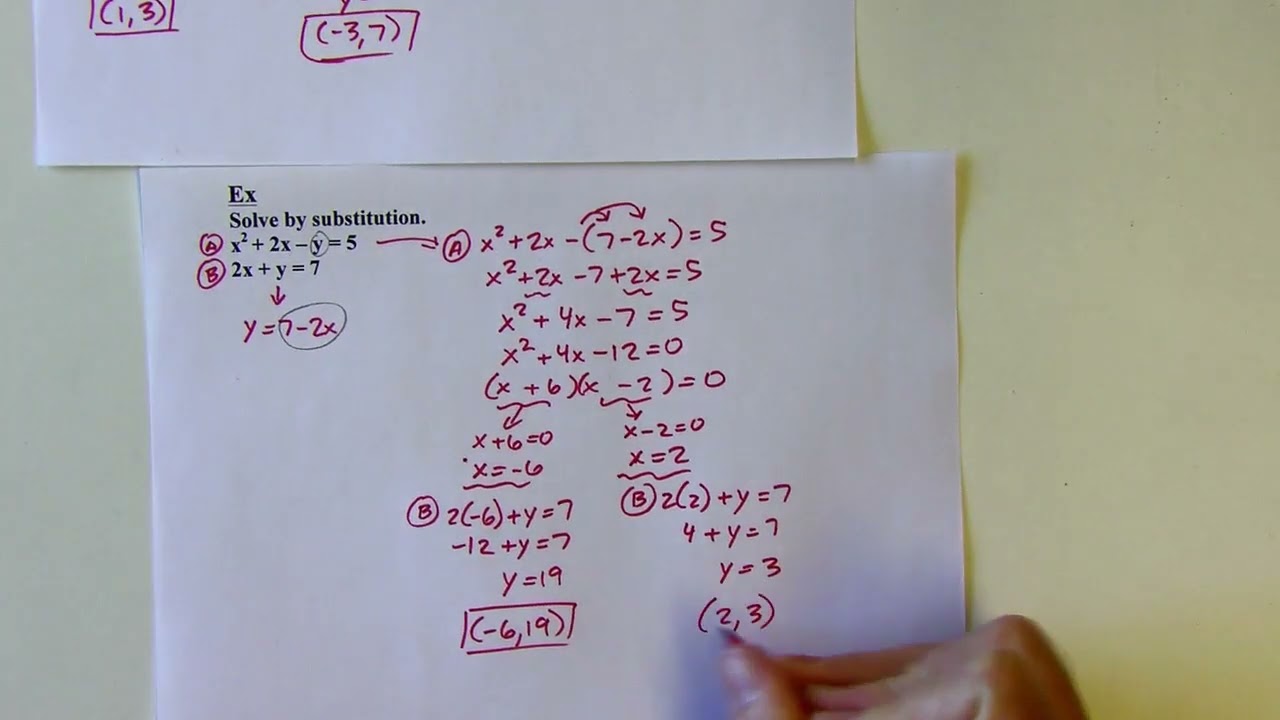 (1, 3)
(-3, 7)
Ex
Solve by substitution.
Ⓐ x² + 2x – y = 5
Ⓑ 2x + y = 7
y = 7-2x
Ⓐ x² + 2x - (7-2x) = 5
x² + 2x - 7 + 2x = 5
x² + 4x - 7 = 5
x² + 4x - 12 = 0
(x + 6)(x - 2) = 0
x + 6 = 0
x = -6
Ⓑ 2(-6) + y = 7
-12 + y = 7
y = 19
(-6, 19)
x - 2 = 0
x = 2
Ⓑ 2(2) + y = 7
4 + y = 7
y = 3
(2, 3)